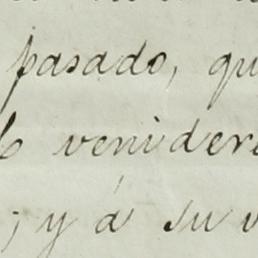 pasado, qu
venider
; y á su v